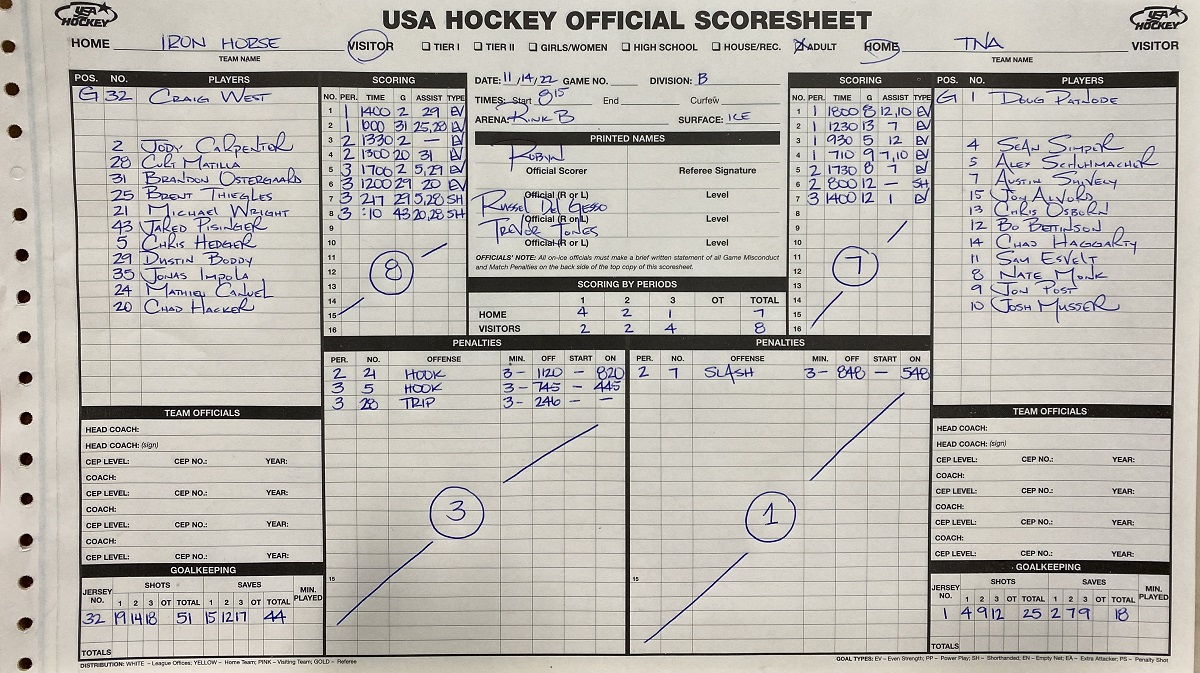 USA HOCKEY
USA HOCKEY OFFICIAL SCORESHEET
USA HOCKEY
HOME IRON HORSE VISITOR TIER I TIER II GIRLS/WOMEN HIGH SCHOOL HOUSE/REC. ADULT HOME TNA VISITOR
TEAM NAME TEAM NAME
POS. NO. PLAYERS
G 32 CRAIG WEST
2 JODY CARPENTER
28 CURT MATILLA
31 BRANDON OSTERGAARD
25 BRENT THIEGLES
21 MICHAEL WRIGHT
43 JARED PISINGER
5 CHRIS HEDGER
29 DUSTIN BODDY
35 JONAS IMPOLA
24 MATHIEU CANUEL
20 CHAD HACKER
SCORING
NO. PER. TIME G ASSIST TYPE
1 1 1400 2 29 EV
2 1 000 31 25,28 EV
3 2 1330 2 — EV
4 2 1300 20 31 EV
5 3 1706 2 5,29 EV
6 3 1200 29 20 EV
7 3 217 29 5,28 SH
8 3 :10 43 20,28 SH
9
10
11
12
13
14
15
16
8
DATE: 11/14/22 GAME NO. DIVISION: B
TIMES: Start 815 End Curfew
ARENA: RINK B SURFACE: ICE
PRINTED NAMES
ROBYN
Official Scorer Referee Signature
Official (R or L) Level
RUSSEL DEL GESSO
Official (R or L) Level
TREVOR JONES
Official (R or L) Level
OFFICIALS' NOTE: All on-ice officials must make a brief written statement of all Game Misconduct
and Match Penalties on the back side of the top copy of this scoresheet.
SCORING BY PERIODS
1 2 3 OT TOTAL
HOME 4 2 1 7
VISITORS 2 2 4 8
SCORING
NO. PER. TIME G ASSIST TYPE
1 1 1800 8 12,10 EV
2 1 1230 13 7 EV
3 1 930 5 12 EV
4 1 710 9 7,10 EV
5 2 1730 8 7 EV
6 2 800 12 — SH
7 3 1400 12 1 EV
8
9
10
11
12
13
14
15
16
7
POS. NO. PLAYERS
G 1 DOUG PATNODE
4 SEAN SIMPER
5 ALEX SCHUHMACHER
7 AUSTIN SHIVELY
15 JON ALVORD
13 CHRIS OSBORN
12 BO BETTINSON
14 CHAD HAGGARTY
11 SAM ESVELT
8 NATE MONK
9 JON POST
10 JOSH MUSSER
PENALTIES
PER. NO. OFFENSE MIN. OFF START ON
2 21 HOOK 3- 1120 — 820
3 5 HOOK 3- 745 — 445
3 28 TRIP 3- 246 — —
3
15
PENALTIES
PER. NO. OFFENSE MIN. OFF START ON
2 7 SLASH 3- 848 — 548
1
15
TEAM OFFICIALS
HEAD COACH:
HEAD COACH: (sign)
CEP LEVEL: CEP NO.: YEAR:
COACH:
CEP LEVEL: CEP NO.: YEAR:
COACH:
CEP LEVEL: CEP NO.: YEAR:
COACH:
CEP LEVEL: CEP NO.: YEAR:
GOALKEEPING
JERSEY NO. SHOTS SAVES MIN. PLAYED
1 2 3 OT TOTAL 1 2 3 OT TOTAL
32 19 14 18 51 15 12 17 44
TOTALS
TEAM OFFICIALS
HEAD COACH:
HEAD COACH: (sign)
CEP LEVEL: CEP NO.: YEAR:
COACH:
CEP LEVEL: CEP NO.: YEAR:
COACH:
CEP LEVEL: CEP NO.: YEAR:
COACH:
CEP LEVEL: CEP NO.: YEAR:
GOALKEEPING
JERSEY NO. SHOTS SAVES MIN. PLAYED
1 2 3 OT TOTAL 1 2 3 OT TOTAL
1 4 9 12 25 2 7 9 18
TOTALS
DISTRIBUTION: WHITE – League Offices; YELLOW – Home Team; PINK – Visiting Team; GOLD – Referee
GOAL TYPES: EV – Even Strength; PP – Power Play; SH – Shorthanded; EN – Empty Net; EA – Extra Attacker; PS – Penalty Shot